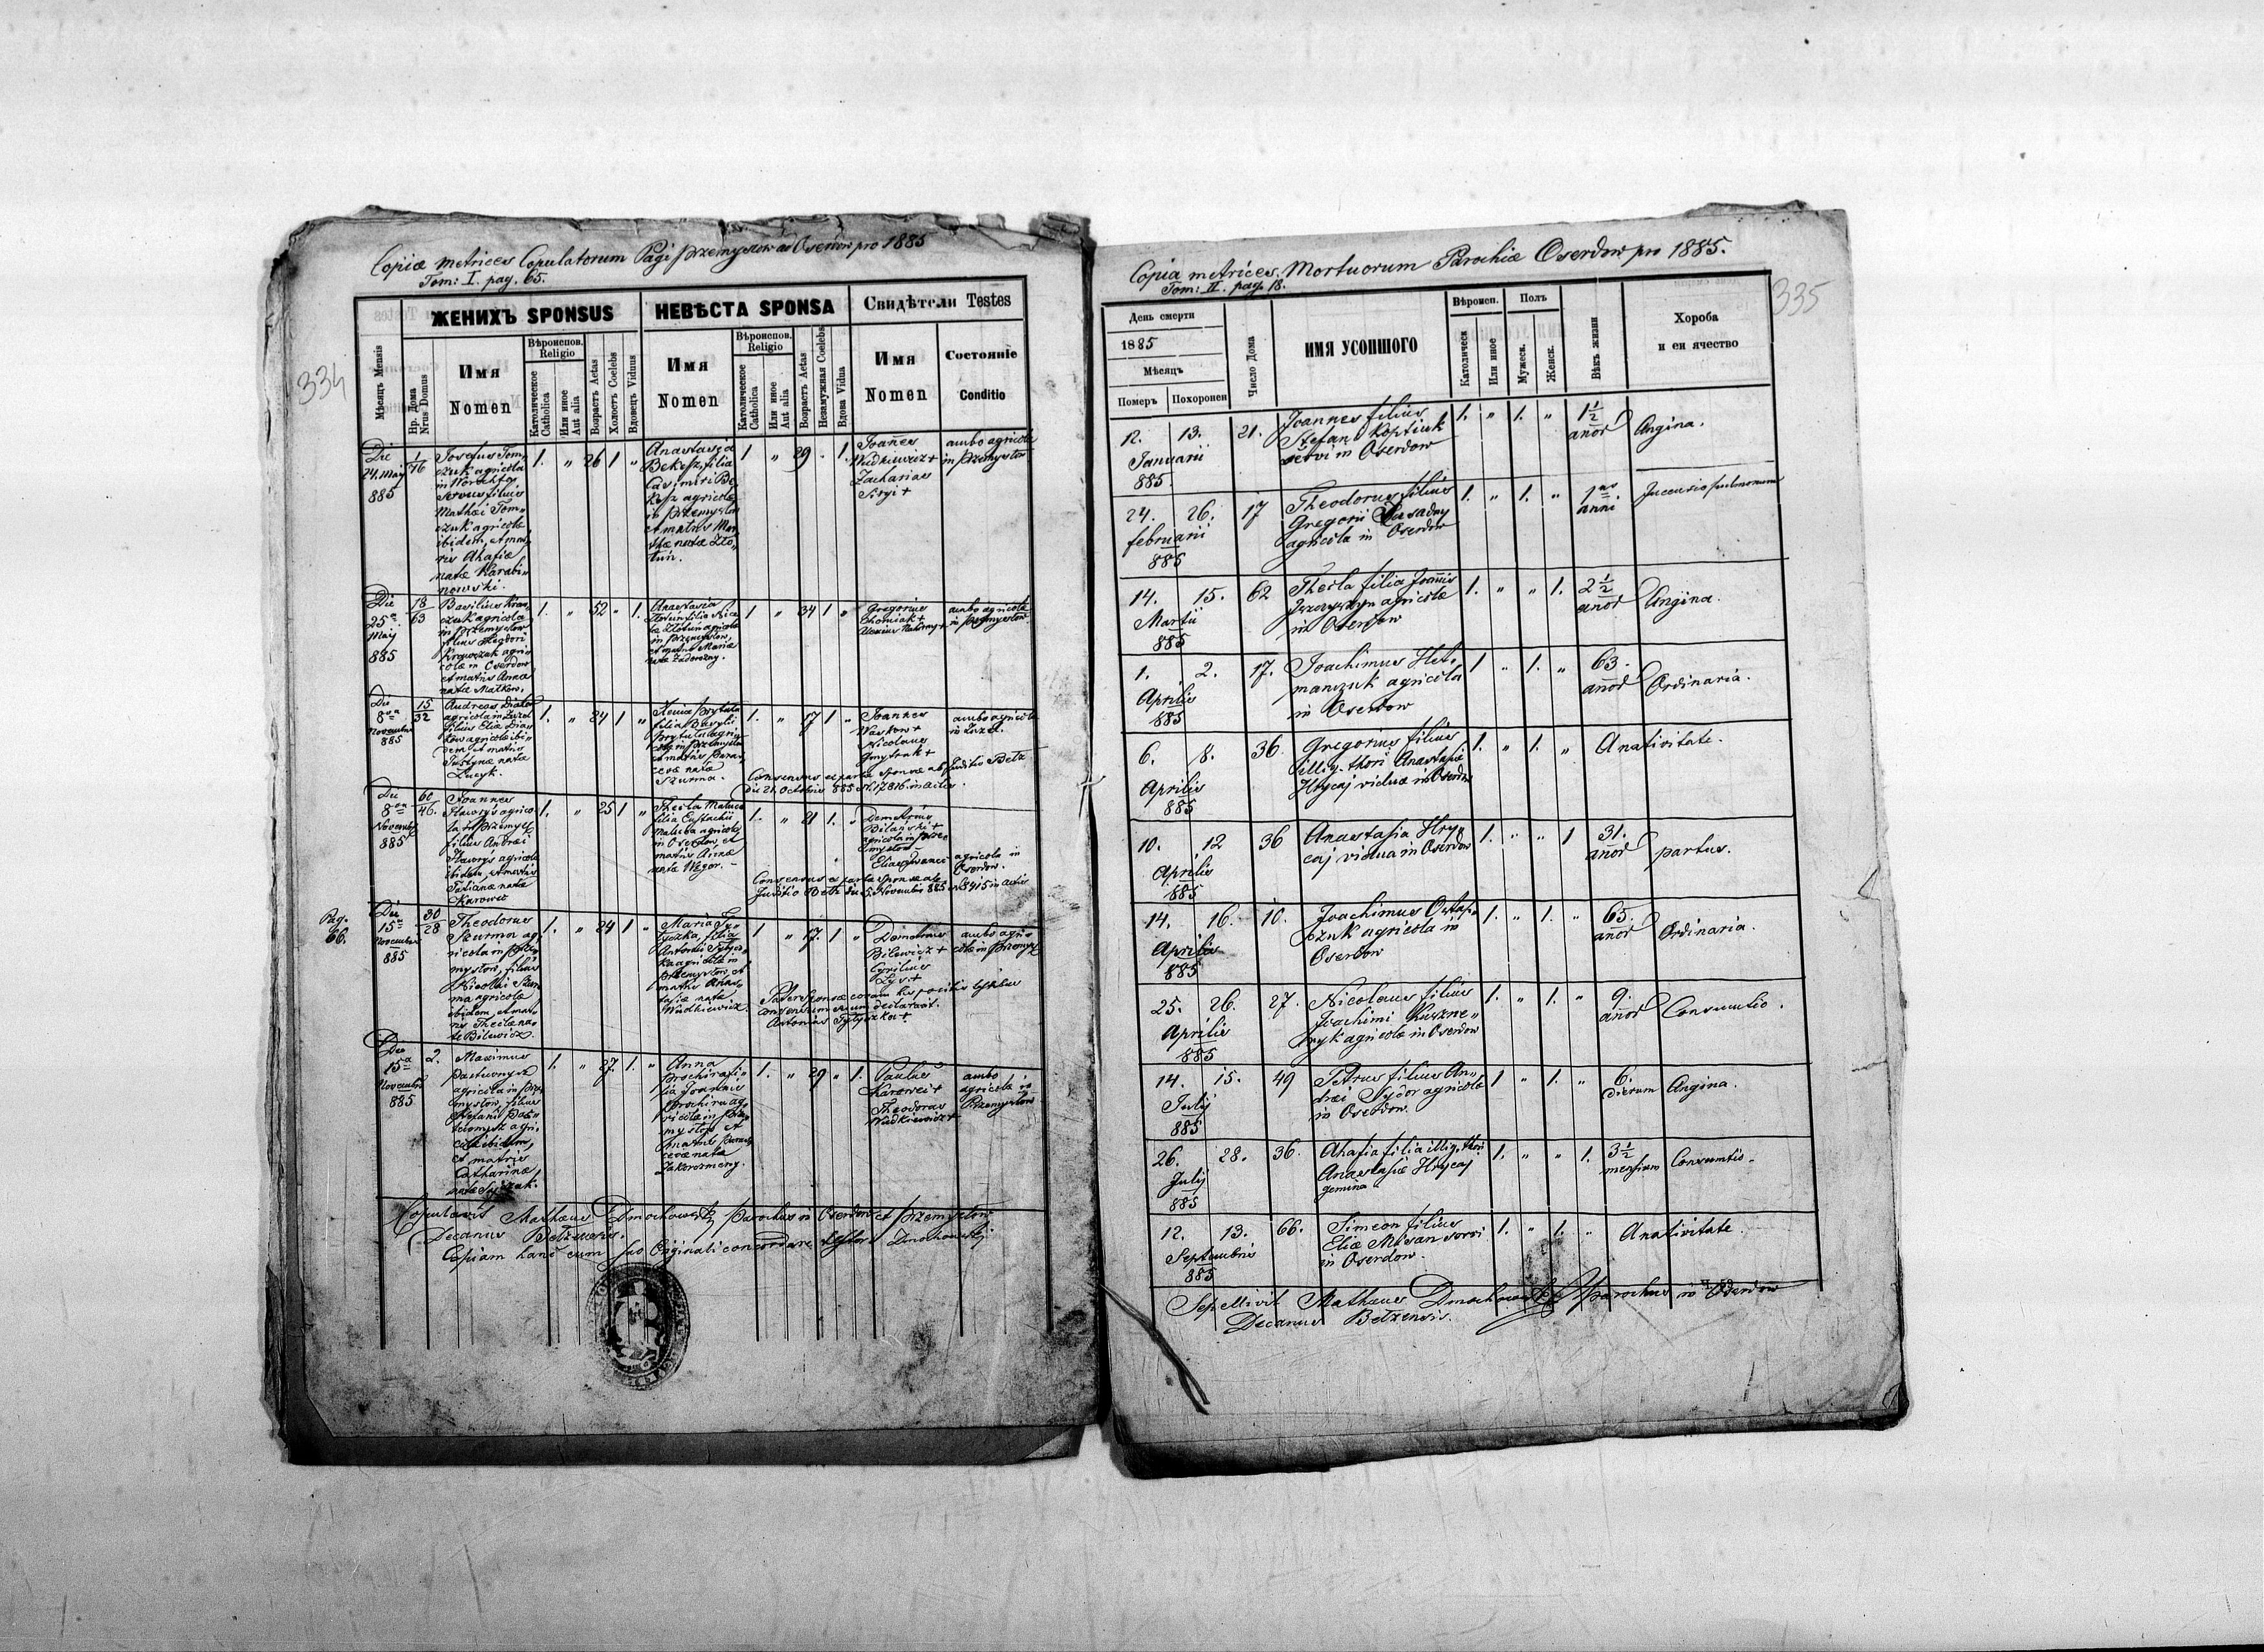 Copia metrices Copulatorum Pagi Przemysłow ad Oserdow pro 1885
Tom: I. pag. 65.
334
ЖЕНИХЪ SPONSUS
НЕВѢСТА SPONSA
Свидѣтели Testes
Мѣсяцъ Mensis
Нр. Дома
Nrus Domus
Имя
Nomen
Вѣроиспов.
Religio
Католическое
Catholica
Или иное
Aut alia
Возрастъ Aetas
Холостъ Coelebs
Вдовецъ Viduus
Имя
Nomen
Вѣроиспов.
Religio
Католическое
Catholica
Или иное
Aut alia
Возрастъ Aetas
Незамужная Coelebs
Вдова Vidua
Имя
Nomen
Состояніе
Conditio
Die
24. Maj
885
1/76
Josefus Tom„
czuk agricola
in Worochta
servus filius
Mathei Tom„
czuk agricolae
ibidem, et mat„
ris Ahafiae
natae Karabi„
nowski.
1. „ 26 1 „
Anastasia
Bekesz, filia
Casimiri Be
kesz agricolae
in Przemysłow
et matris Mar
thae natae Zło„
tun.
1 „ 29 . 1.
Joannes
Wudkiewicz +
Zacharias
Siryi +
ambo agricolae
in Przemysłow
Die
25a
Maij
885
18/63
Basilius Kraw„
czuk agricola
in Przemysłow
filius Theodori
Krawczuk agri„
colae in Oserdow
et matris Annae
natae Matkow.
1. „ 52 „ 1.
Anastasia
Złotun filia Nico
lai Złotun agricolae
in Przemysłow,
et matris Mariae
natae Zadorozny.
1 „ 34 1 „
Gregorius
Chomiak +
ambo agricolae
in Przemysłow.
Die
8va
Novembr
885
15/32
Andreas Diakow
agricola in Zuzel
filius Eliae Dia„
kow agricolae ibi„
dem et matris
Justynae natae
Lucyk.
1. „ 24 1 „
Xenia Prytula
filia Basylii
Prytula agri„
colae in Przemysłow
et matris Paras„
cevae natae
Szurma.
1. „ 17 1 „
Joannes
Waskow +
Nicolaus
Gmytruk +
ambo agricolae
in Zuzel.
Consensus ex parte sponsae ab Juditio Bełz
die 21. Octobris 885 N. 17816. in actis.
Die
8va
Novembr
885
60/46.
Joannes
Hawryś agrico„
la in Przemysł
filius Andrei
Hawryś agricolae
ibidem, et matris
Tatianae natae
Karowec
1. „ 25 1 „
Thecla Maluca
filia Eustachii
Maluca agricolae
in Oserdow, et
matris Annae
natae Węgor.
1. „ 21 1. „
Demetrius
Bilański +
agricola in Prze„
mysłow
Elias Iwanec
agricola in
Oserdow.
Consensus ex parte sponsae ab
Juditio Bełz die 5. Novembris 885 N. 18415 in actis
Pag.
66.
Die
15a
Novembr
885
30/28
Theodorus
Szurma ag„
ricola in Prze„
mysłow, filius
Nicolai Szur„
ma agricolae
ibidem, et mat„
ris Theclae na„
tae Bilewicz.
1. „ 24 1 „
Maria Ty„
tyczka, filia
Antonii Tytycz„
ka agricolae in
Przemysłow, et
matris Anas„
tasiae natae
Wudkiewicz.
1 „ 17. 1 „
Demetrius
Bilewicz +
Cyrillus
Zyś +
ambo agri„
colae in Przemysł
Pater Sponsae coram his positis testibus
consensum suum declaravit.
Antonius Tytyczka +.
Die
15a
Novembr
885
2.
Maximus
Pasternysz
agricola in Prze
mysłow, filius
Stefani Pas„
ternysz agri„
colae ibidem,
et matris
Catharinae
natae Syczuk.
1. „ 27. 1. „
Anna
Prochira fi„
lia Joannis
Prochira ag„
ricolae in Prze„
mysłow et
matris Paras„
cevae natae
Zakrozmeny.
1. „ 29 „ 1.
Paulus
Karowec +
Theodorus
Wudkiewicz +
ambo
agricolae in
Przemysłow
Copulavit Mathaeus Dmochowski Parochus in Oserdow et Przemysłow
Decanus Bełzensis.
Copiam hanc cum suo Originali concordare testor Dmochowski
Copia metrices Mortuorum Parochiae Oserdow pro 1885.
Tom: II. pag. 18.
335
День смерти
1885
Мѣсяцъ
Померъ Похоронен
Число Дома
ИМЯ УСОПШОГО
Вѣроисп.
Католическ
Или иное
Полъ
Мужеск.
Женск.
Вѣкъ жизни
Хороба
и еи ячество
12. 13.
Januarii
885
21.
Joannes filius
Stefani Koptiuk
servi in Oserdow
1. „ 1. „
1 1/2
anor
Angina.
24. 26.
februarii
885
17
Theodorus filius
Gregorii Susadny
agricola in Oserdow
1. „ 1. „
1
anni
14. 15.
Martii
885
62
Thecla filia Joannis
agricolae
in Oserdow
1. „ „ 1.
2 1/2
anor
Angina.
1. 2.
Aprilis
885
17.
Joachimus Het„
manczuk agricola
in Oserdow
1 „ 1. „
63.
anor
Ordinaria.
6. 8.
Aprilis
885
36.
Gregorius filius
illig. thori Anastasiae
Hrycaj viduae in Oserdow
1. „ 1. „
A nativitate.
10. 12
Aprilis
885
36
Anastasia Hry„
caj vidua in Oserdow
1. „ „ 1
31.
anor
partus.
14. 16.
Aprilis
885
10.
Joachimus Ostap„
czuk agricola in
Oserdow
1. „ 1. „
65.
anor
Ordinaria.
25. 26.
Aprilis
885
27.
Nicolaus filius
Joachimi Kuszne„
ryk agricolae in Oserdow
1. „ 1. „
9.
anor
Consumtio.
14. 15.
Julij
885
49
Petrus filius An„
drei Sydor agricolae
in Oserdow.
1 „ 1. „
6.
dierum
Angina.
26. 28.
Julij
885
36.
Ahafia filia illig. thori
Anastasiae Hrycaj
gemina
1. „ „ 1.
3 1/2
mensium
Consumtio.
12. 13.
Septembris
885
66.
Simeon filius
Eliae Misan servi
in Oserdow.
1. „ 1. „
A nativitate.
Sepellivit Mathaeus Dmochowski Parochus in Oserdow
Decanus Bełzensis.